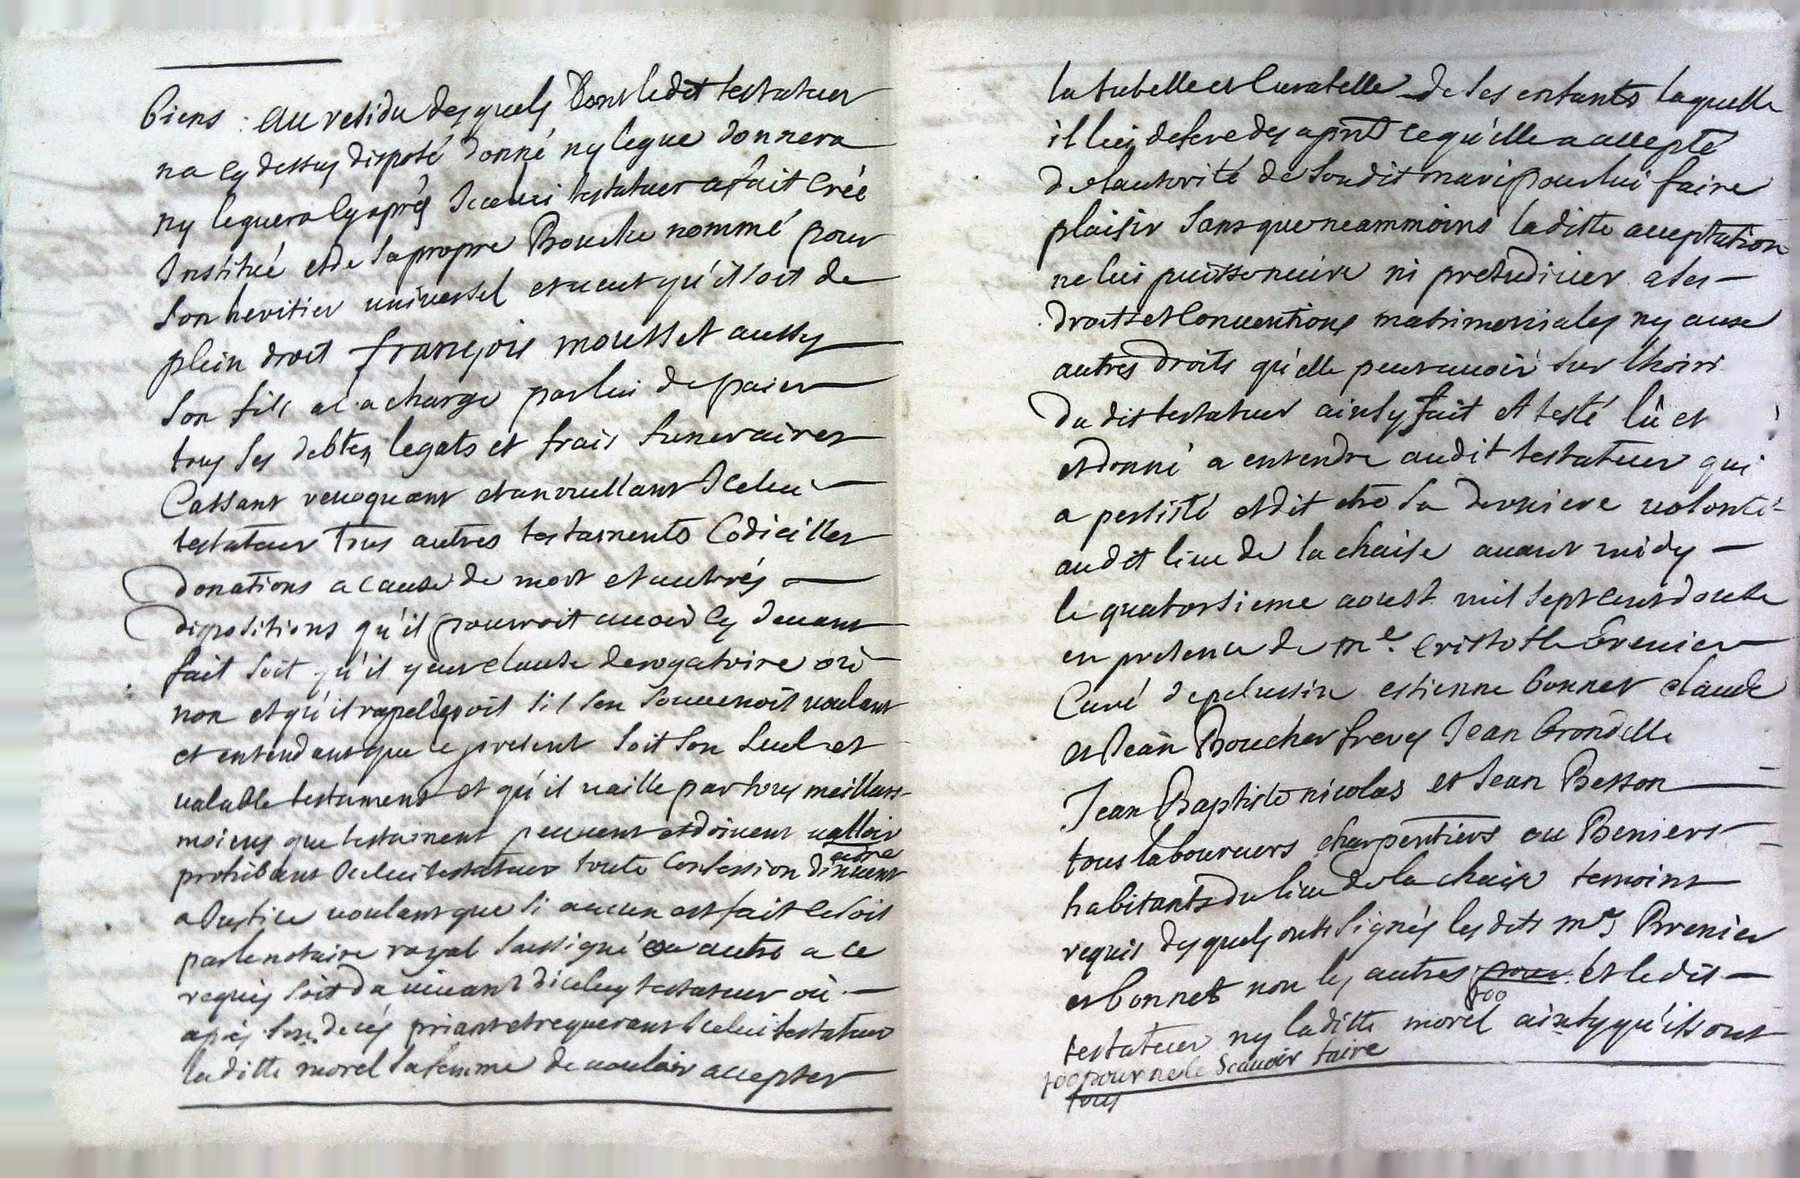 biens : au residu desquels dont ledit testateur
na cy dessus disposé donné ny legue donnera
ny leguera cy après Icelui testateur a fait créé
Institué et de sa propre Bouche nommé pour
son heritier universel et veut qu'il soit de
plein droit françois mousset aussy
son fils a la charge par lui de paier
tous ses debtes legats et frais funeraires
Cassant revoquant et annullant Icelui
testateur tous autres testaments Codicilles
donations a cause de mort et autres
dispositions qu'il pourroit avoir cy devant
fait soit qu'il y eut clause derogatoire ou
non et qu'il rapelleroit s'il s'en souvenoit voulant
et entendant que le present soit son seul et
valable testament et qu'il vaille par tous meilleurs
moiens que testament peuvent et doivent valloir
prohibant Icelui testateur toute Confession d'inventaire
a Justice voulant que si aucun est fait le soit
par le notaire royal soussigné ou autre a ce
requis soit du vivant d'iceluy testateur ou
après son decés priant et requerant Icelui testateur
laditte morel sa femme de vouloir accepter
la tutelle et Curatelle de ses enfants laquelle
il lui defere des apnt ce qu'elle a accepté
de lautorité de soudit mari pour lui faire
plaisir sans que neammoins laditte acceptation
ne lui puisse nuire ni prejudicier a ses
droits et Conventions matrimoniales ny aux
autres droits qu'elle peut avoir sur lhoiri
dudit testateur ainsy fait et testé lû et
et donné a entendre audit testateur qui
a persisté et dit etre sa derniere volonté
audit lieu de la chaise avant midy
le quatorsieme aoust mil sept cent douse
en presence de me. cristofle Grenier
Curé de pelussin estienne bonnet claude
et Jean Boucher freres Jean Grondelle
Jean Baptiste nicolas et Jean Besson
tous laboureurs charpentiers ou Beniers
habitants du lieu de la chaise temoins
requis desquels ont signés lesdits mrs Brenier
et bonnet non les autres pour et ledit
testateur ny laditte morel ainsy qu'ils ont
pour ne le scavoir faire
tous